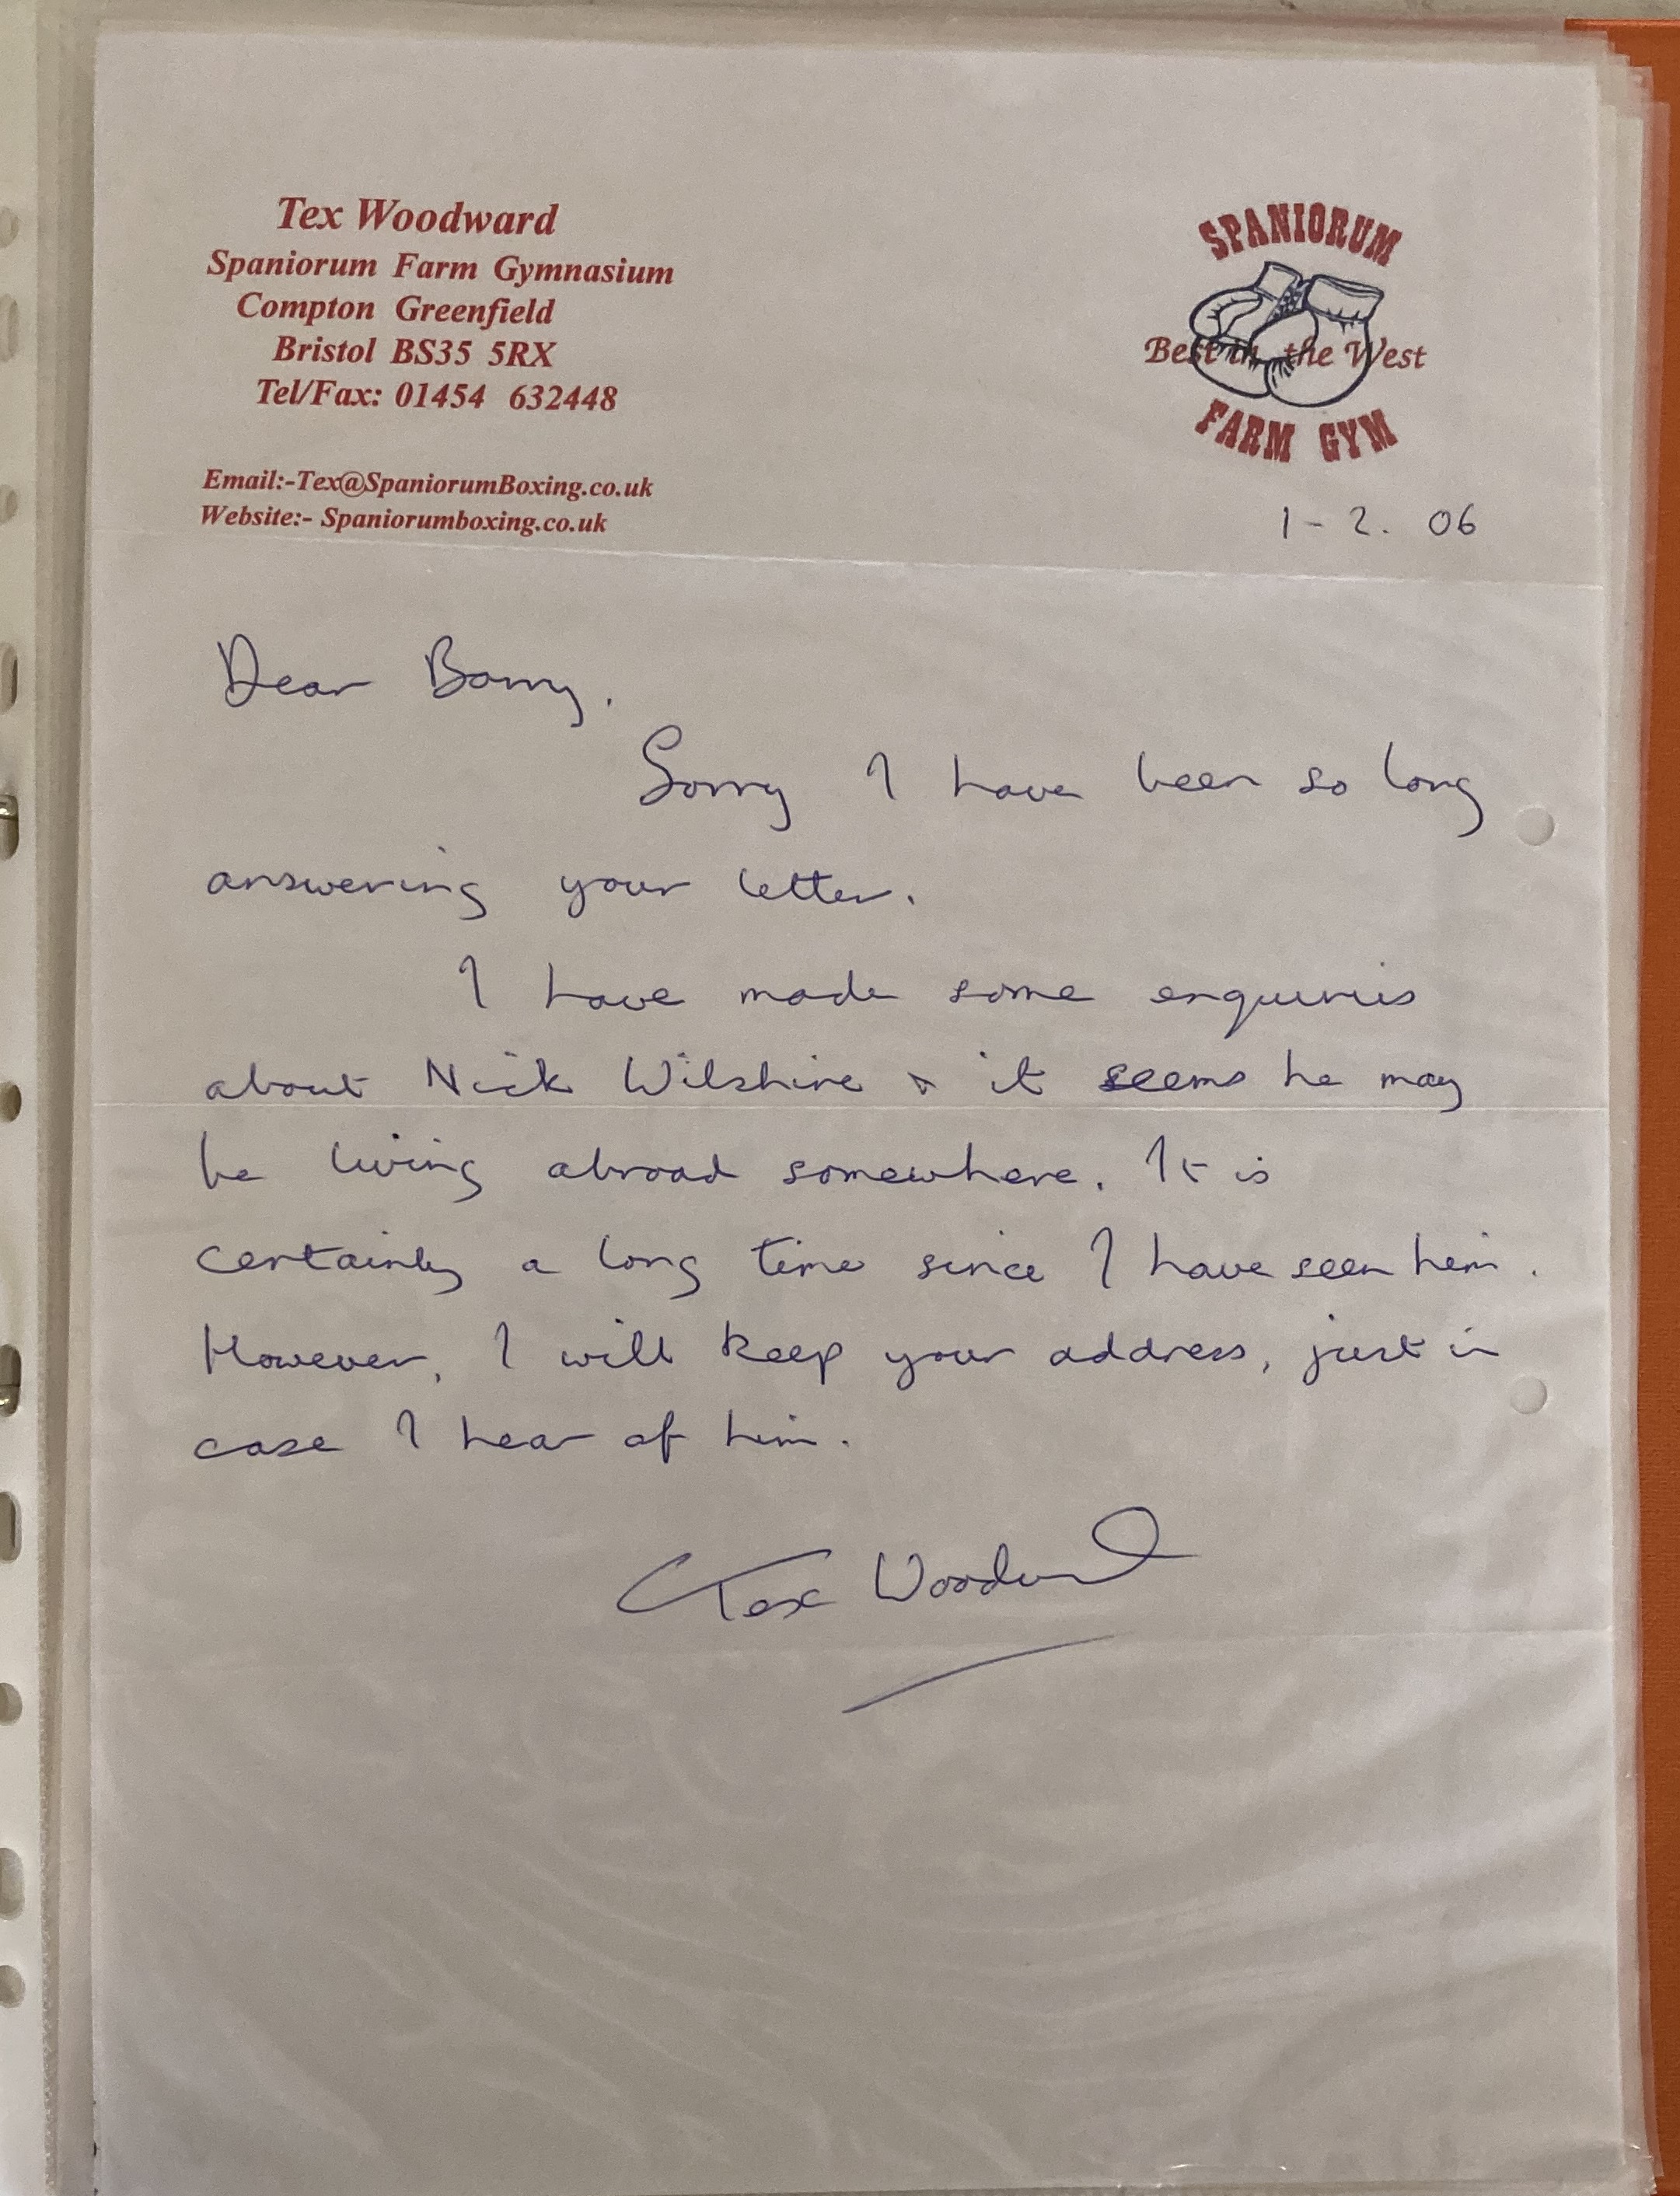 Tex Woodward
Spaniorum Farm Gymnasium
Compton Greenfield
Bristol BS35 5RX
Tel/Fax: 01454 632448
Email:-Tex@SpaniorumBoxing.co.uk
Website:- Spaniorumboxing.co.uk
SPANIORUM
Best in the West
FARM GYM
1-2. 06
Dear Barry.
Sorry I have been so long
answering your letter.
I have made some enquiries
about Nick Wilshire & it seems he may
be living abroad somewhere. It is
certainly a long time since I have seen him.
However, I will keep your address, just in
case I hear of him.
Tex Woodward